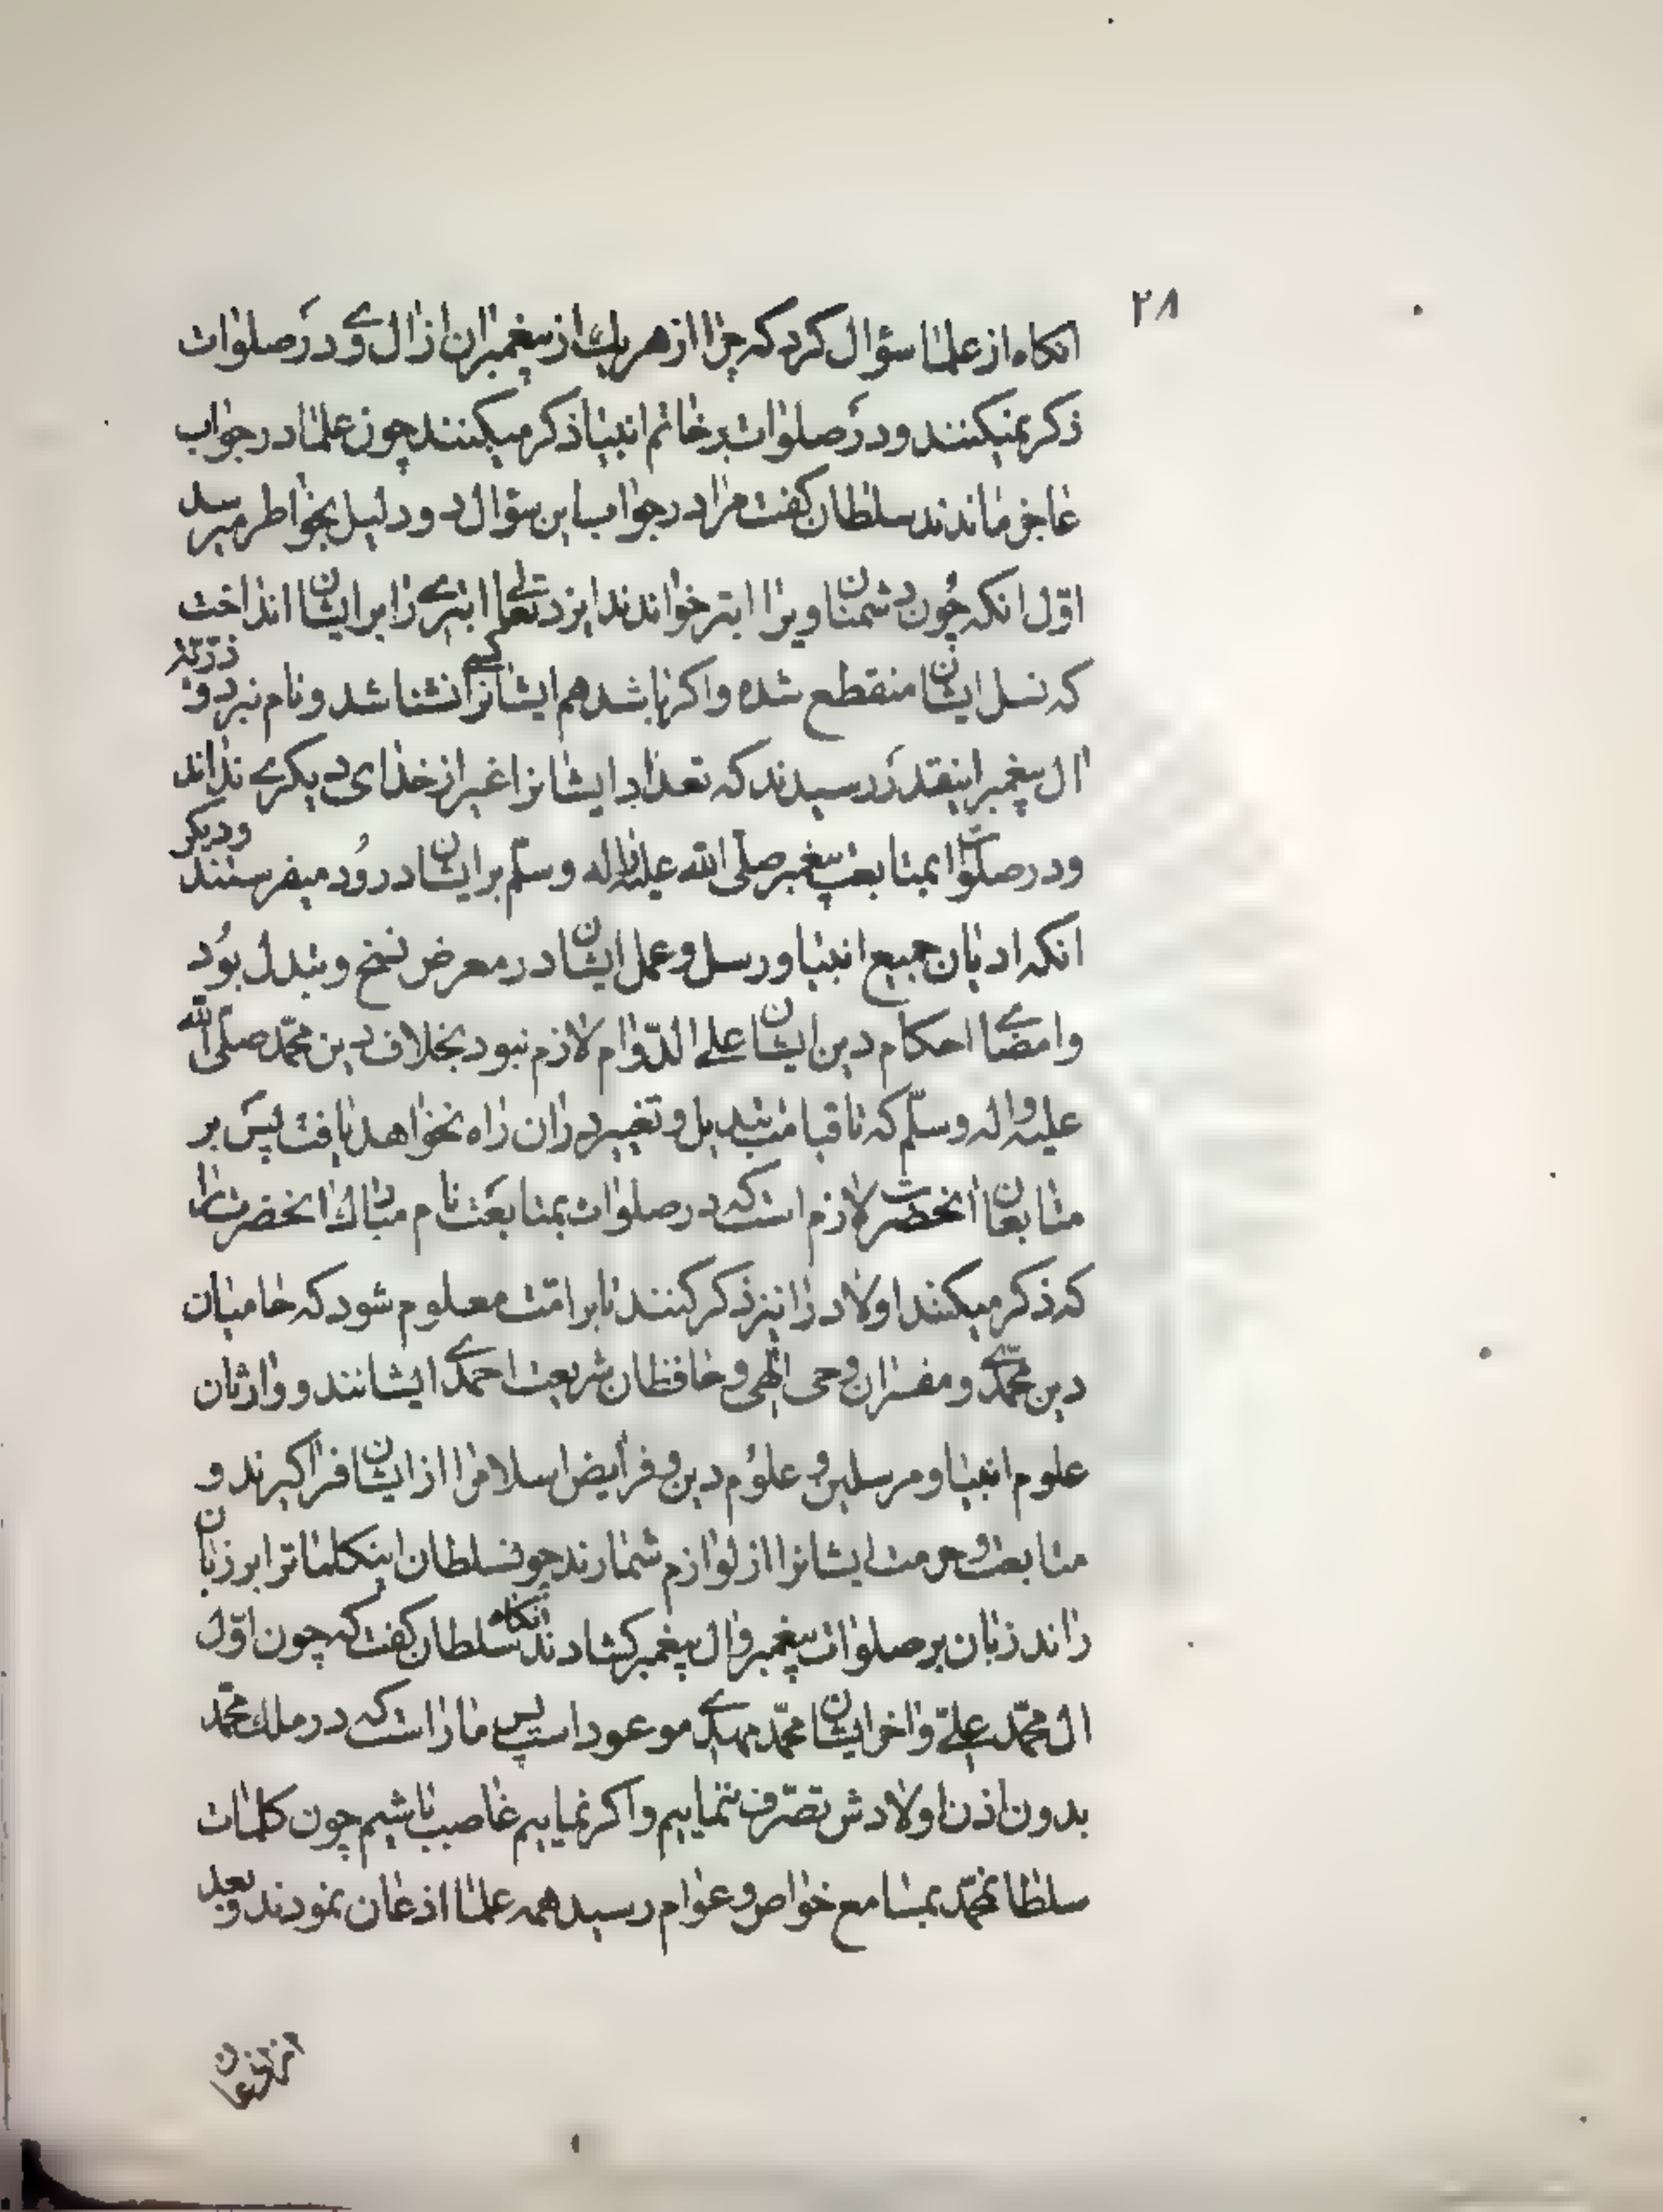 ۲۸
انکاه از علما سؤال کرد که چرا از هر یک از پیغمبران از ال وی در صلوات
ذکر نمیکنند و در صلوات بر خاتم انبیا ذکر میکنند چون علما در جواب
عاجز ماندند سلطان کفت مرا در جواب این سؤال دو دلیل بخواطر میرسد
اوّل انکه چون دشمنان ویرا ابتر خواندند ایزد تعالی ابتری را بر ایشان انداخت
که نسل ایشان منقطع شده و اکر باشد هم ایشانرا کسی نشناسد و نام نبرد و ذرّیّه
ال پیغمبر اینقدر رسیدند که تعداد ایشانرا غیر از خدای دیکری نداند
و در صلوات بمتابعت پیغمبر صلّی الله علیه واله وسلّم بر ایشان درود میفرستند و دیکر
انکه ادیان جمیع انبیا و رسل و عمل ایشان در معرض نسخ و تبدل بود
و امضای احکام دین ایشان علی الدّوام لازم نبود بخلاف دین محمّد صلّی الله
علیه واله وسلّم که تا قیامت تبدیل و تغییر در ان راه نخواهد یافت پس بر
متابعان انحضرت لازم است که در صلوات بمتابعت نام مبارک انحضرت را
که ذکر میکنند اولاد را نیز ذکر کنند تا بر امّت معلوم شود که حامیان
دین محمّدی و مفسران وحی الهی و حافظان شریعت احمدی ایشانند و وارثان
علوم انبیا و مرسلین و علوم دین و فرایض اسلام را از ایشان فرا کیرند و
متابعت و حرمت ایشانرا از لوازم شمارند چون سلطان اینکلماترا بر زبان
راند زبان بر صلوات پیغمبر و ال پیغمبر کشادند انکاه سلطان کفت که چون اوّل
ال محمّد علیّ و اخر ایشان محمّد مهدی موعود است پس ما راست که در ملک محمّد
بدون اذن اولادش تصرّف ننماییم و اکر نماییم غاصب باشیم چون کلمات
سلطان محمّد بمسامع خواص و عوام رسید همه علما اذعان نمودند و بعد